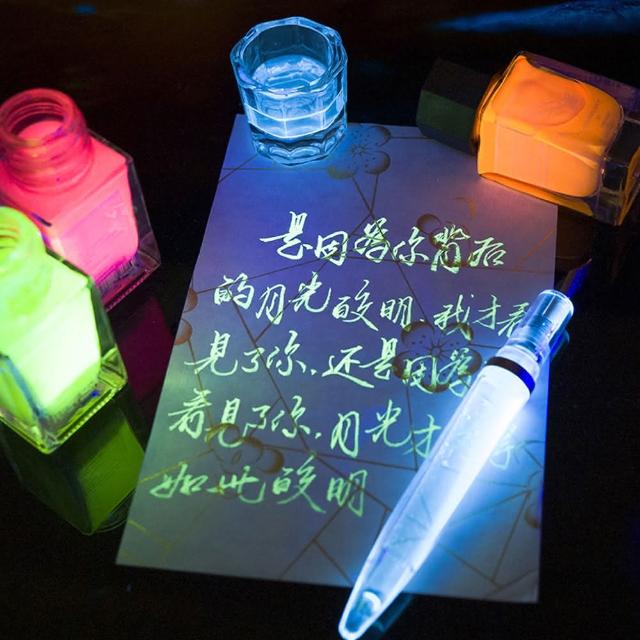 是因为你背后
的月光皎明,我才看
见了你,还是因为
看见了你,月光才
如此皎明